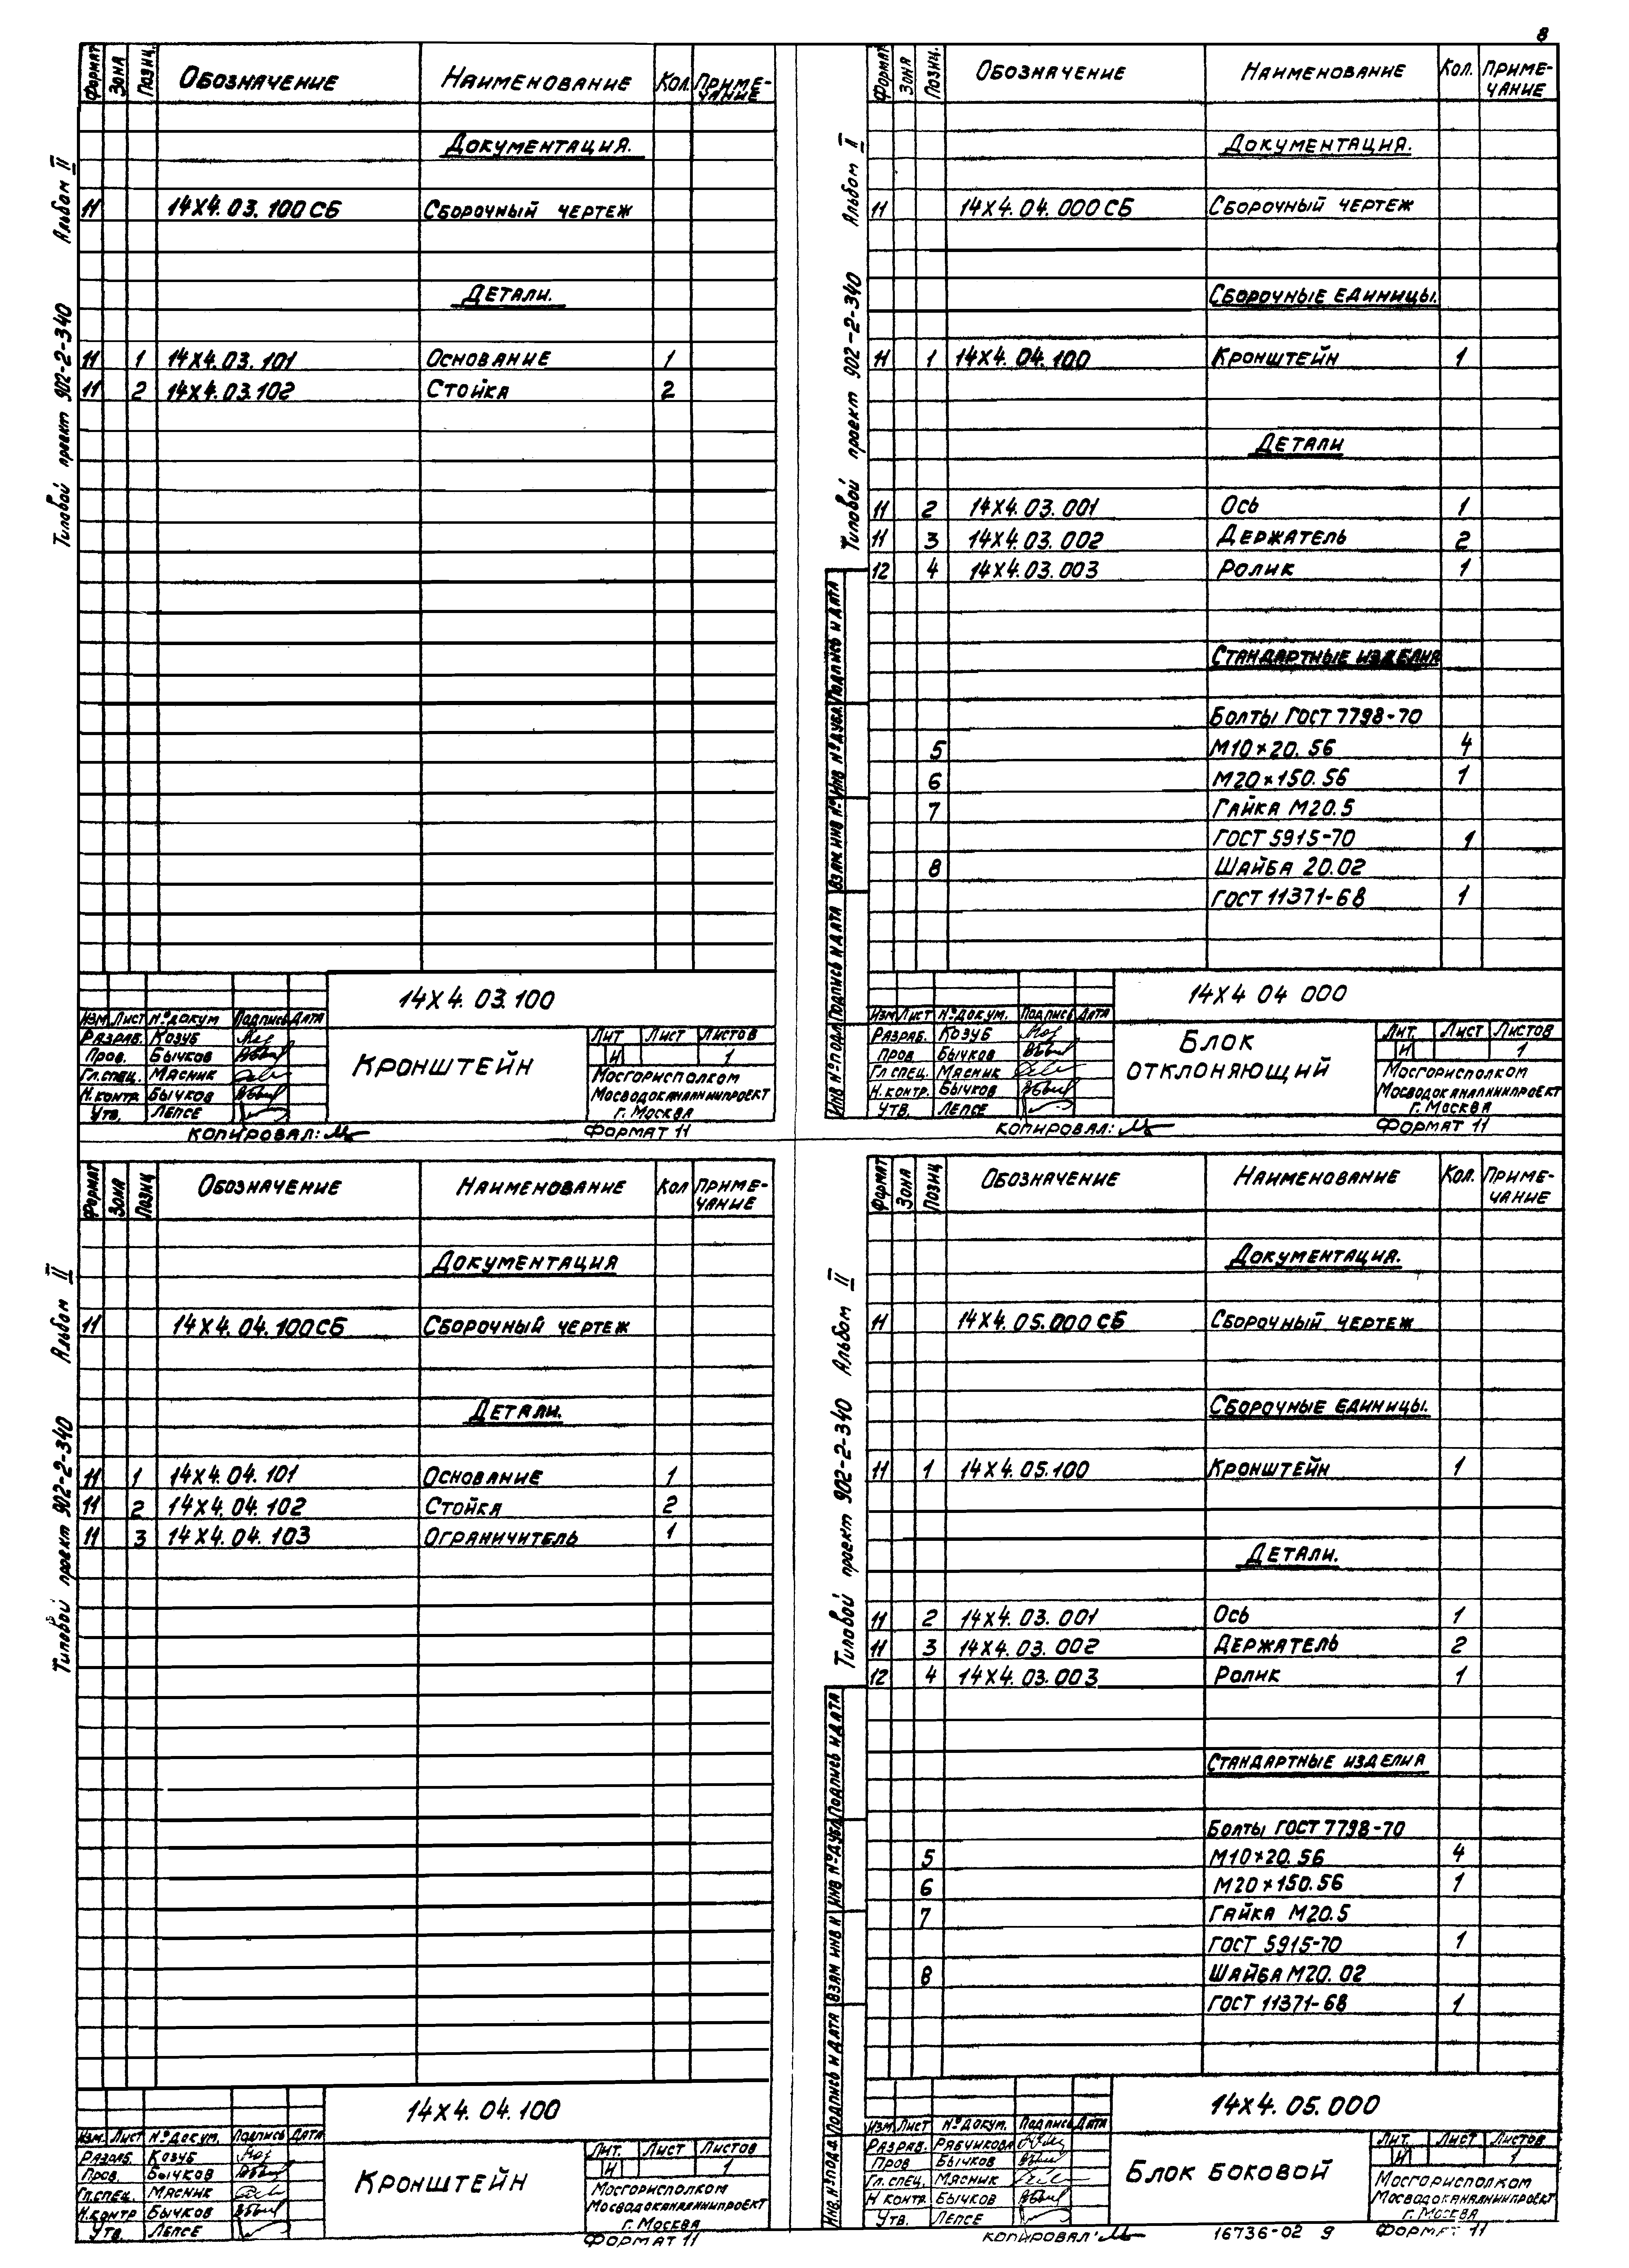 8
Альбом II
Типовой проект 902-2-340
Формат Зона Позиц. Обозначение Наименование Кол. Приме-
чание
Документация.
11 14Х4.03.100СБ Сборочный чертеж
Детали.
11 1 14Х4.03.101 Основание 1
11 2 14Х4.03.102 Стойка 2
14Х4.03.100
Изм Лист №докум Подпись Дата
Разраб. Козуб
Пров. Бычков
Гл.спец. Мясник
Н.контр. Бычков
Утв. Лепсе
Кронштейн
Лит Лист Листов
И 1
Мосгорисполком
Мосводоканалниипроект
г. Москва
Копировал:
Формат 11
Альбом II
Типовой проект 902-2-340
Формат Зона Позиц. Обозначение Наименование Кол. Приме-
чание
Документация.
11 14Х4.04.000СБ Сборочный чертеж
Сборочные единицы.
11 1 14Х4.04.100 Кронштейн 1
Детали
11 2 14Х4.03.001 Ось 1
11 3 14Х4.03.002 Держатель 2
12 4 14Х4.03.003 Ролик 1
Стандартные изделия
Болты ГОСТ 7798-70
5 М10×20.56 4
6 М20×150.56 1
7 Гайка М20.5
ГОСТ 5915-70 1
8 Шайба 20.02
ГОСТ 11371-68 1
Инв №подл Подпись и дата Взам инв № Инв №дубл. Подпись и дата
14Х4 04 000
Изм Лист №докум. Подпись Дата
Разраб. Козуб
Пров Бычков
Гл спец. Мясник
Н.контр. Бычков
Утв. Лепсе
Блок
отклоняющий
Лит. Лист Листов
И 1
Мосгорисполком
Мосводоканалниипроект
г. Москва
Копировал:
Формат 11
Альбом II
Типовой проект 902-2-340
Формат Зона Позиц Обозначение Наименование Кол Приме-
чание
Документация
11 14Х4.04.100СБ Сборочный чертеж
Детали.
11 1 14Х4.04.101 Основание 1
11 2 14Х4.04.102 Стойка 2
11 3 14Х4.04.103 Ограничитель 1
14Х4.04.100
Изм. Лист №докум. Подпись Дата
Разраб. Козуб
Пров. Бычков
Гл.спец. Мясник
Н.контр Бычков
Утв. Лепсе
Кронштейн
Лит. Лист Листов
И 1
Мосгорисполком
Мосводоканалниипроект
г. Москва
Формат 11
Альбом II
Типовой проект 902-2-340
Формат Зона Позиц Обозначение Наименование Кол. Приме-
чание
Документация.
11 14Х4.05.000СБ Сборочный чертеж
Сборочные единицы.
11 1 14Х4.05.100 Кронштейн 1
Детали.
11 2 14Х4.03.001 Ось 1
11 3 14Х4.03.002 Держатель 2
12 4 14Х4.03.003 Ролик 1
Стандартные изделия
Болты ГОСТ 7798-70
5 М10×20.56 4
6 М20×150.56 1
7 Гайка М20.5
ГОСТ 5915-70 1
8 Шайба М20.02
ГОСТ 11371-68 1
Инв.№подл. Подпись и дата Взам инв № Инв №дубл Подпись и дата
14Х4.05.000
Изм. Лист №докум. Подпись Дата
Разраб. Рябчикова
Пров Бычков
Гл.спец. Мясник
Н контр. Бычков
Утв. Лепсе
Блок боковой
Лит. Лист Листов
И 1
Мосгорисполком
Мосводоканалниипроект
г. Москва
Копировал:
16736-02 9
Формат 11